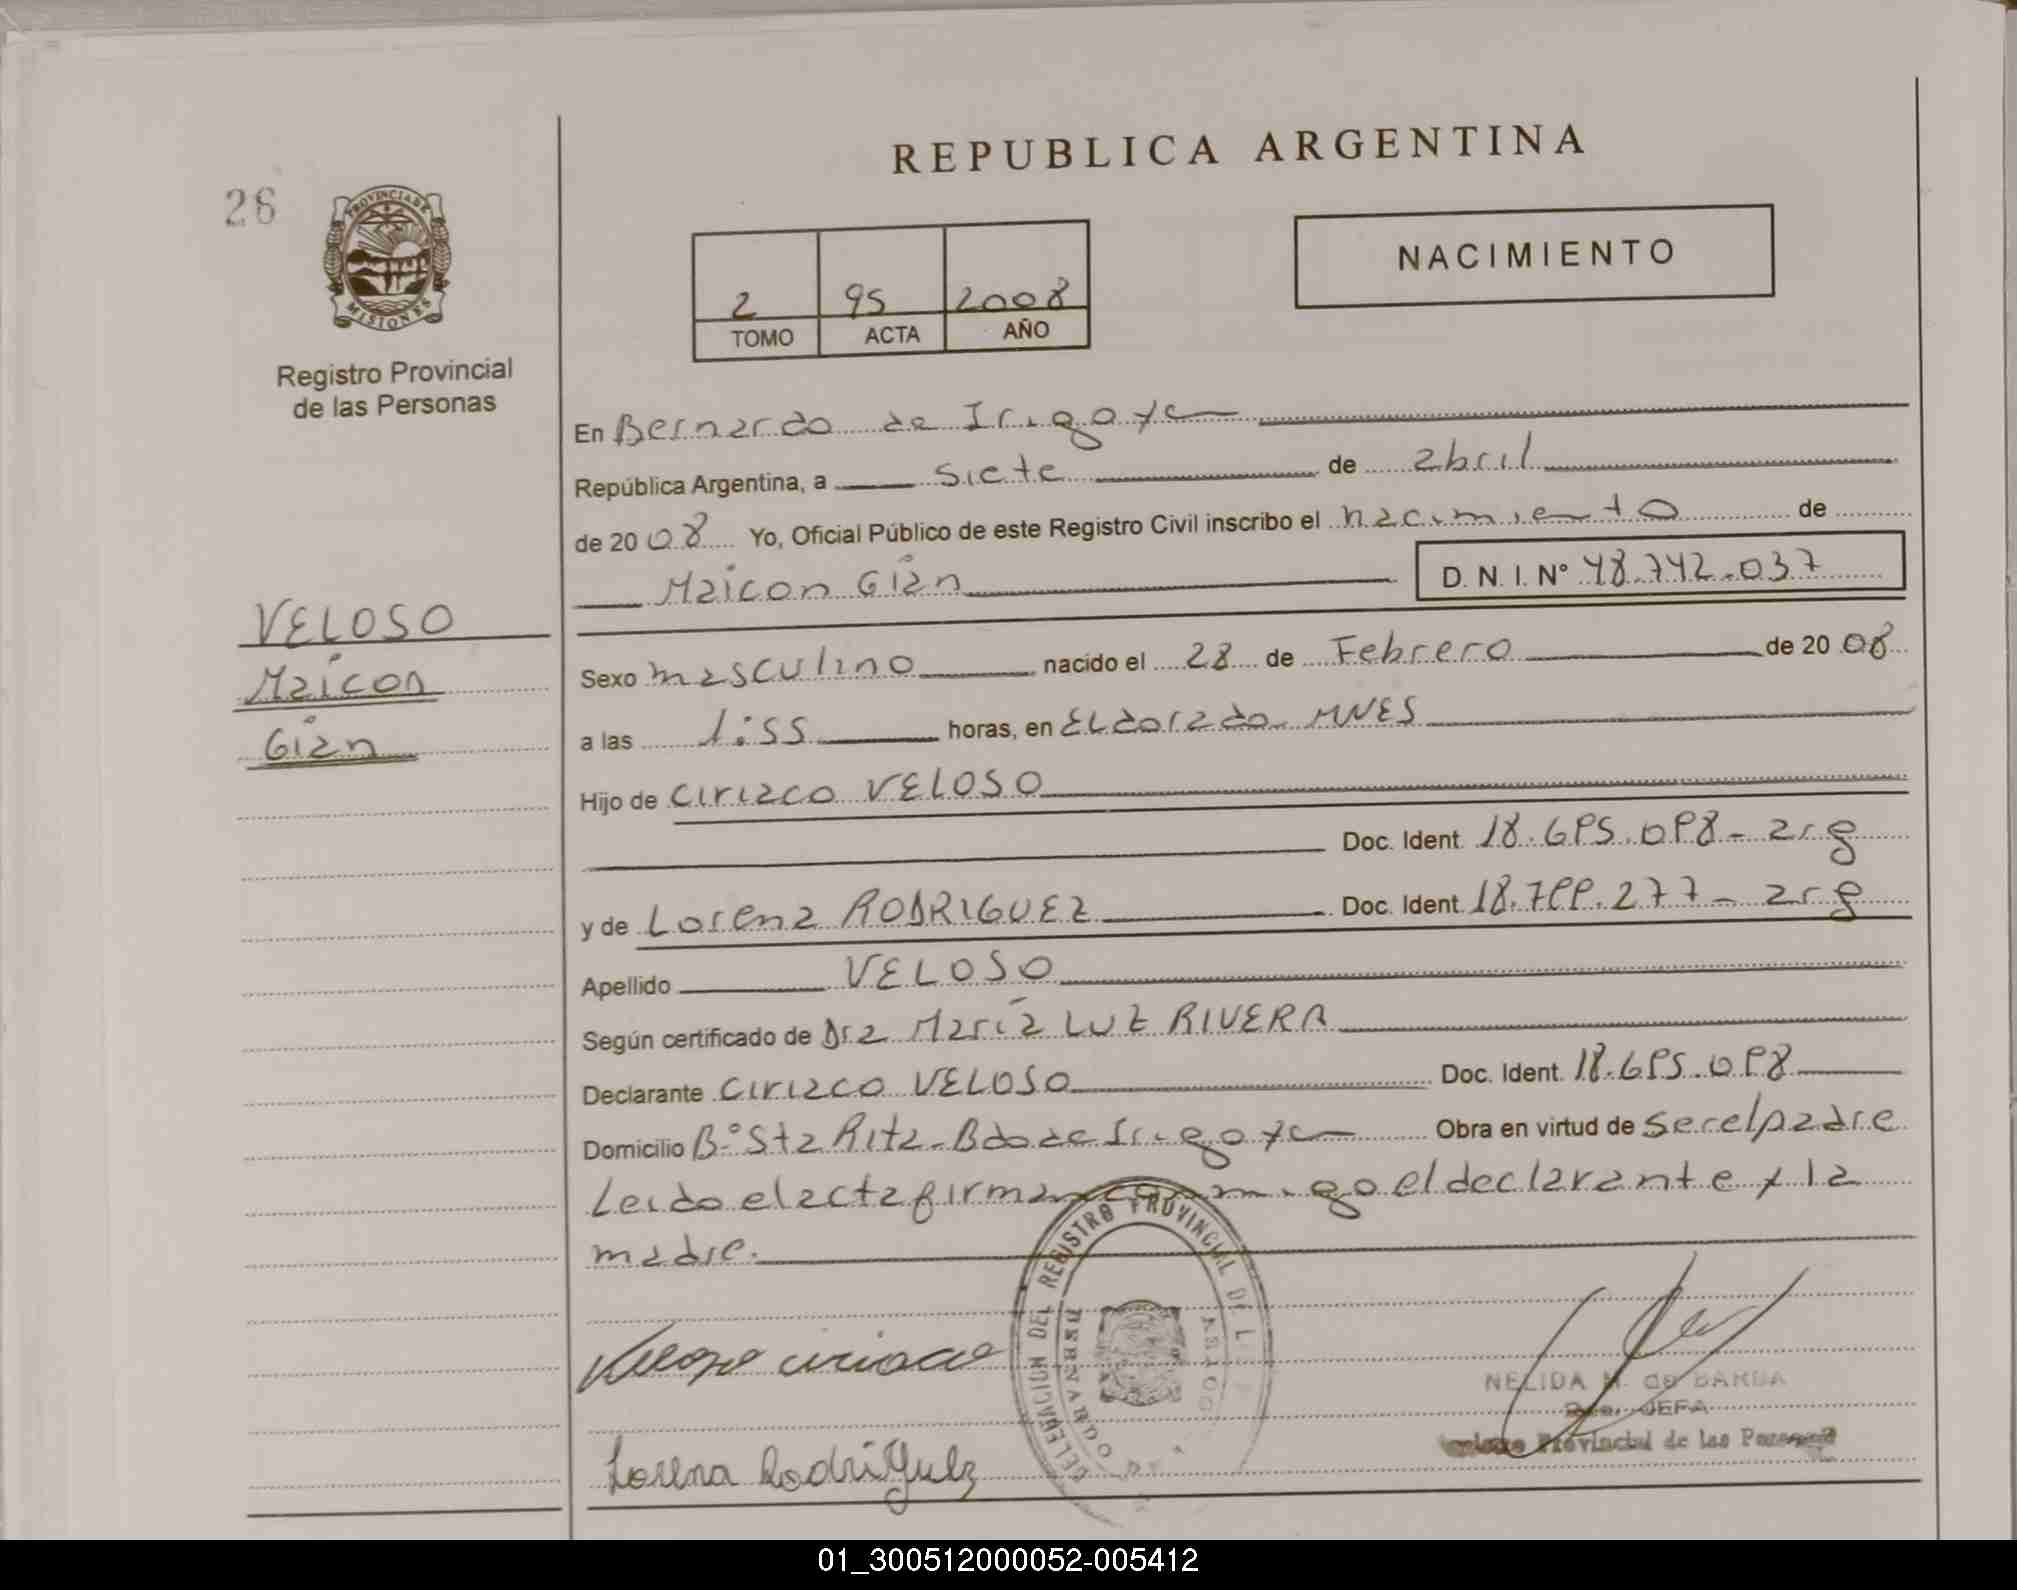 REPUBLICA ARGENTINA
26
PROVINCIA DE
MISIONES
Registro Provincial
de las Personas
NACIMIENTO
2 95 2008
TOMO ACTA AÑO
En Bernardo de Irigoyen
República Argentina, a siete de abril
de 2008 Yo, Oficial Público de este Registro Civil inscribo el nacimiento de
Maicon Gian D. N. I. N° 48.742.037
VELOSO
Maicon
Gian
Sexo masculino nacido el 28 de Febrero de 2008
a las 1:55 horas, en Eldorado MNES
Hijo de Ciriaco VELOSO
Doc. Ident. 18.695.098 - arg
y de Lorena RODRIGUEZ Doc. Ident. 18.799.277 - arg
Apellido VELOSO
Según certificado de Dra María LUZ RIVERA
Declarante Ciriaco VELOSO Doc. Ident. 18.695.098
Domicilio B° Sta Rita - Bdo de Irigoyen Obra en virtud de ser el padre
Leido el acta firman conmigo el declarante y la
madre.
Veloso ciriaco
Lorena Rodriguez
REGISTRO PROVINCIAL DE L
NELIDA N. de BARBA
JEFA
Provincial de las Personas
01_300512000052-005412